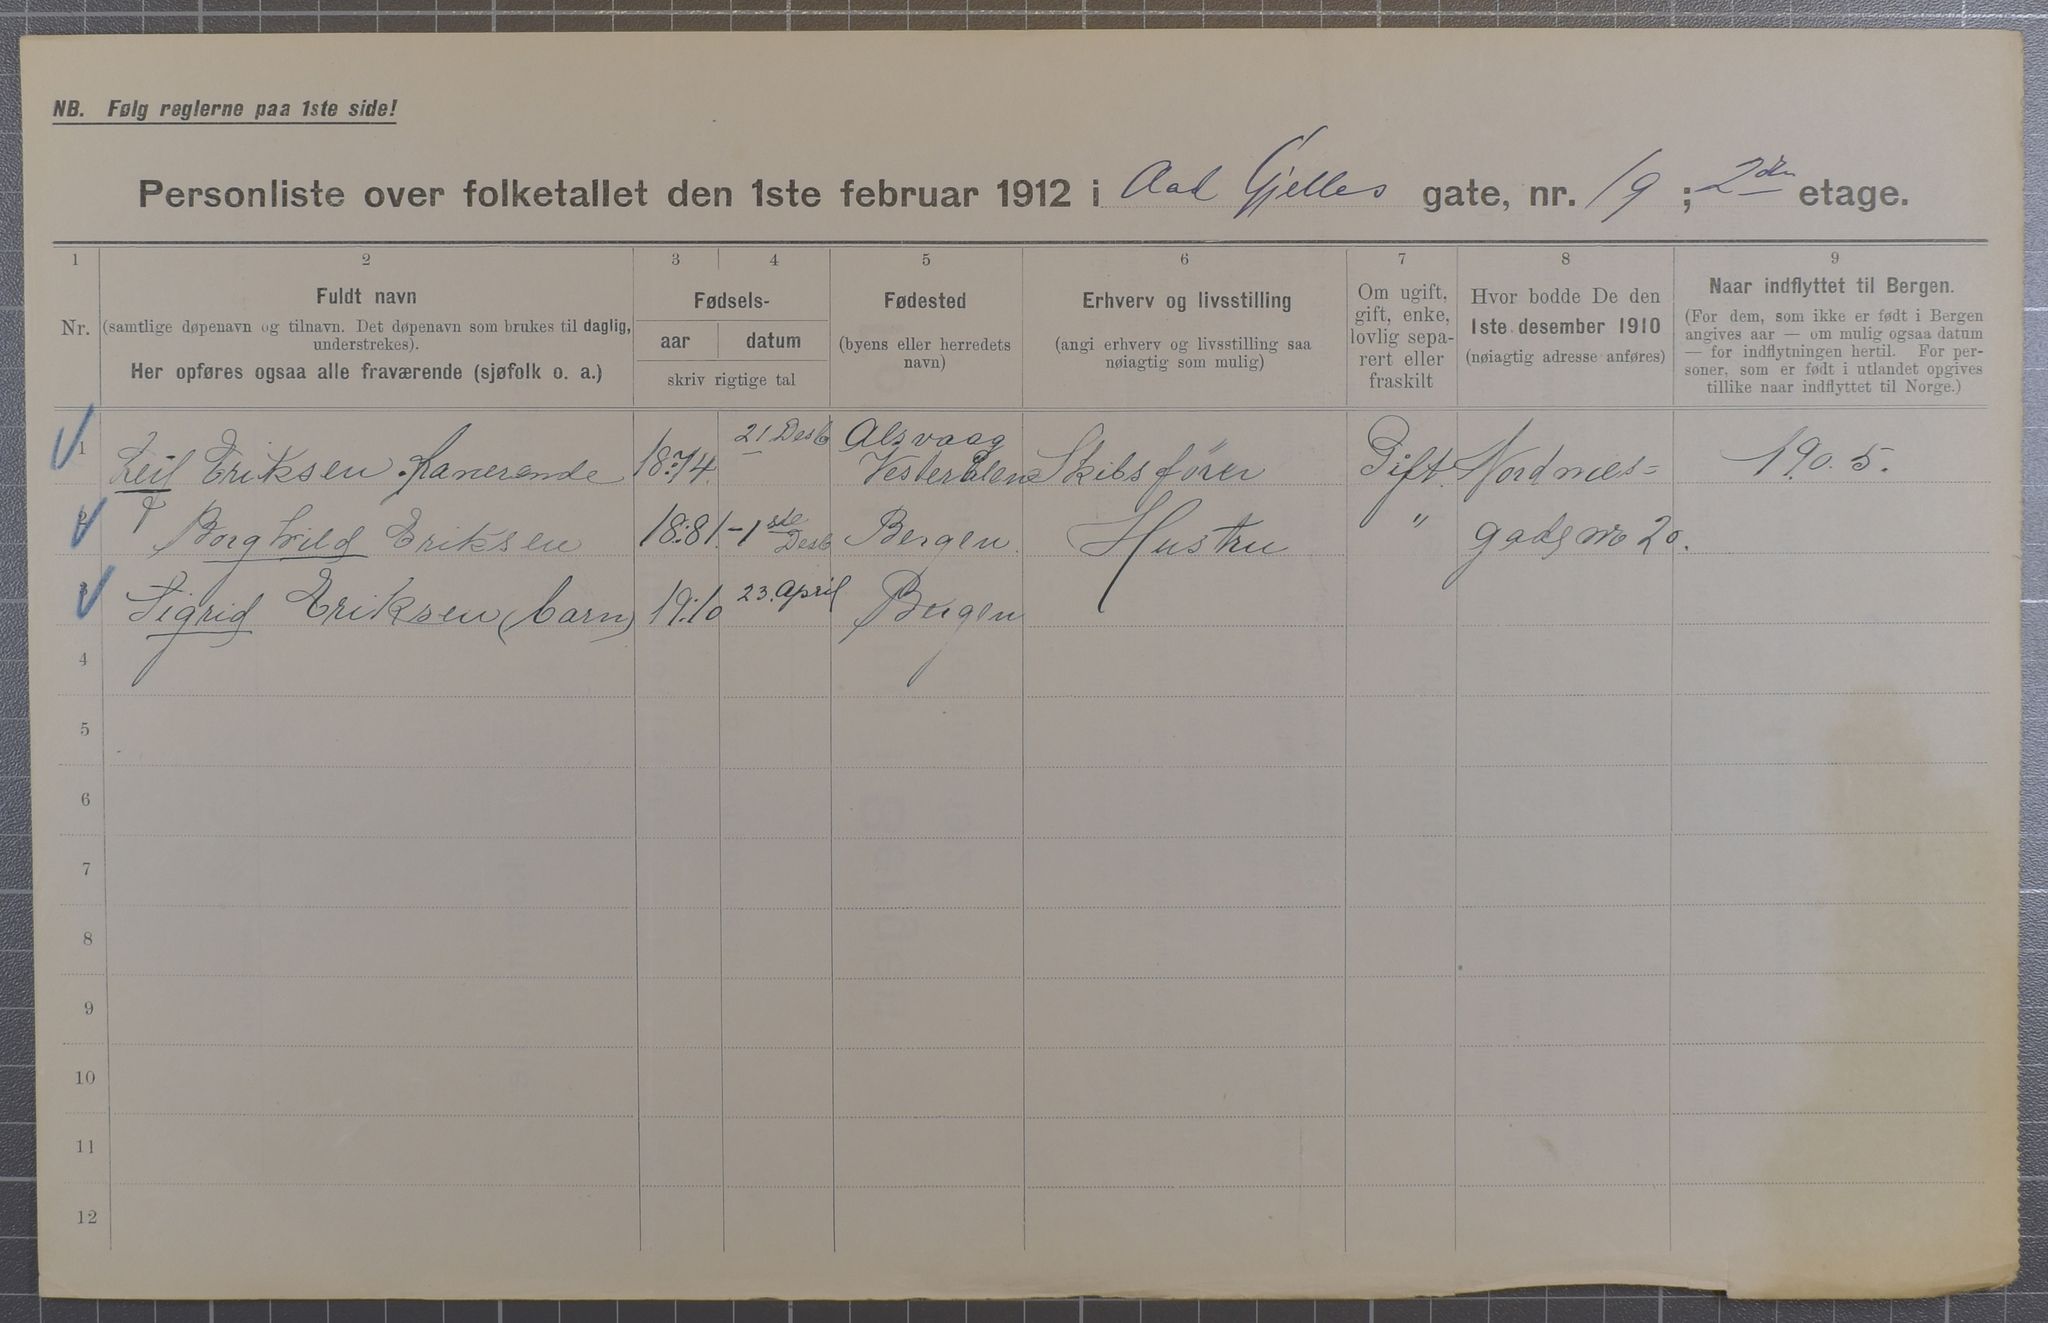 NB. Følg reglerne paa 1ste side!
Personliste over folketallet den 1ste februar 1912 i Aad Gjelles gate, nr. 19 ; 2den etage.
1 2 3 4 5 6 7 8 9
Nr.
Fuldt navn
(samtlige døpenavn og tilnavn. Det døpenavn som brukes til daglig,
understrekes).
Her opføres ogsaa alle fraværende (sjøfolk o. a.)
Fødsels-
aar datum
skriv rigtige tal
Fødested
(byens eller herredets
navn)
Erhverv og livsstilling
(angi erhverv og livsstilling saa
nøiagtig som mulig)
Om ugift,
gift, enke,
lovlig sepa-
rert eller
fraskilt
Hvor bodde De den
1ste desember 1910
(nøiagtig adresse anføres)
Naar indflyttet til Bergen.
(For dem, som ikke er født i Bergen
angives aar — om mulig ogsaa datum
— for indflytningen hertil. For per-
soner, som er født i utlandet opgives
tillike naar indflyttet til Norge.)
1 Leif Eriksen 1874. 21 Desb Alsvaag Vesteraalen Skibsfører Gift. Nordnes= 1905.
2 Borghild Eriksen 1881. - 1ste Desb Bergen. Hustru " gade no 20.
3 Sigrid Eriksen (barn) 1910 23. April Bergen
4
5
6
7
8
9
10
11
12